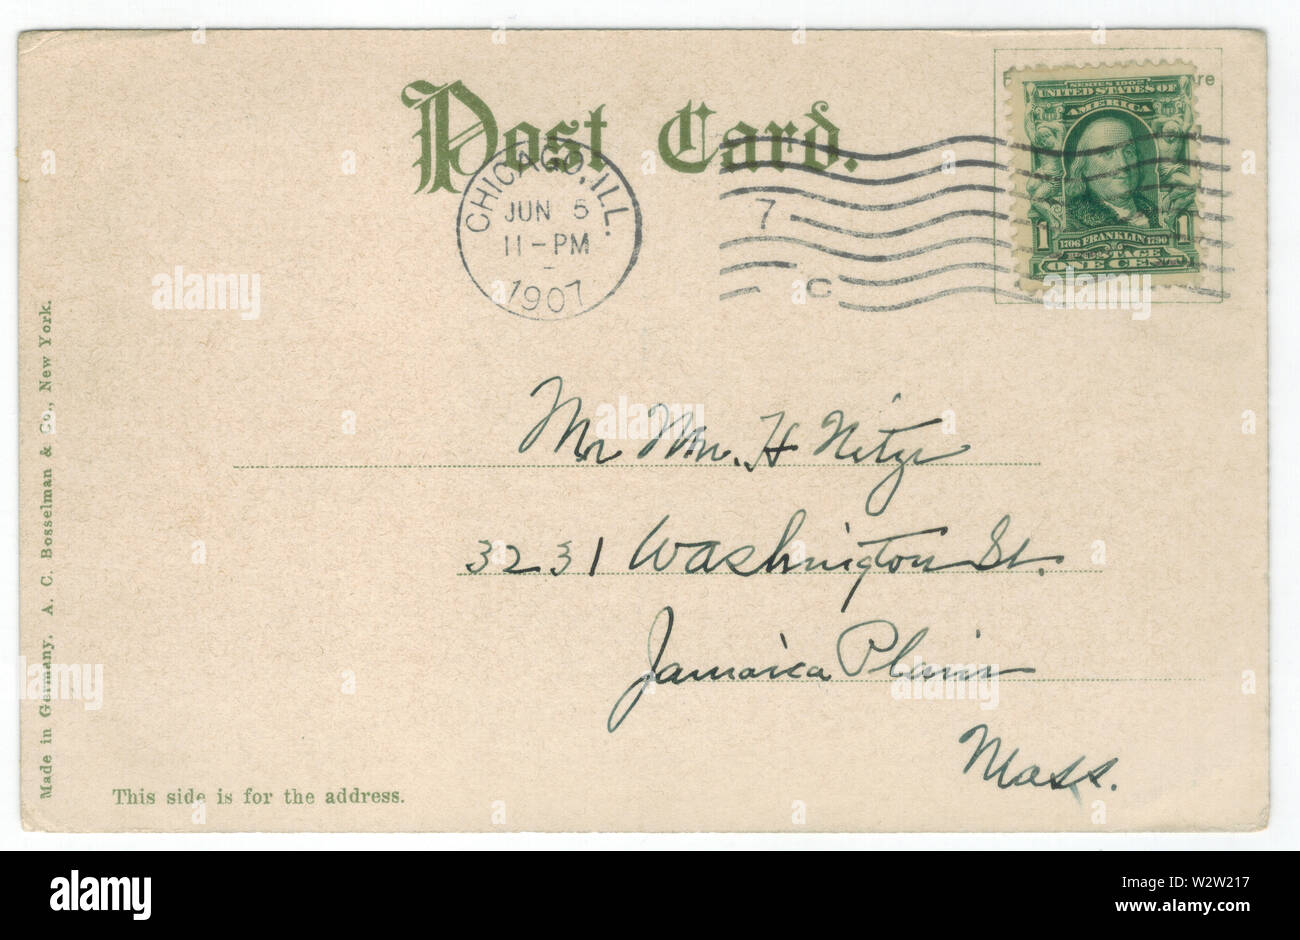 Post Card.
SERIES 1902
UNITED STATES OF
AMERICA
1 1
1706 FRANKLIN 1790
POSTAGE
ONE CENT
CHICAGO, ILL.
JUN 5
11-PM
1907
7
C
Mr Wm. H Nitze
3231 Washington St.
Jamaica Plain
Mass.
Made in Germany. A. C. Bosselman & Co., New York.
This side is for the address.
alamy
Image ID: W2W217
www.alamy.com